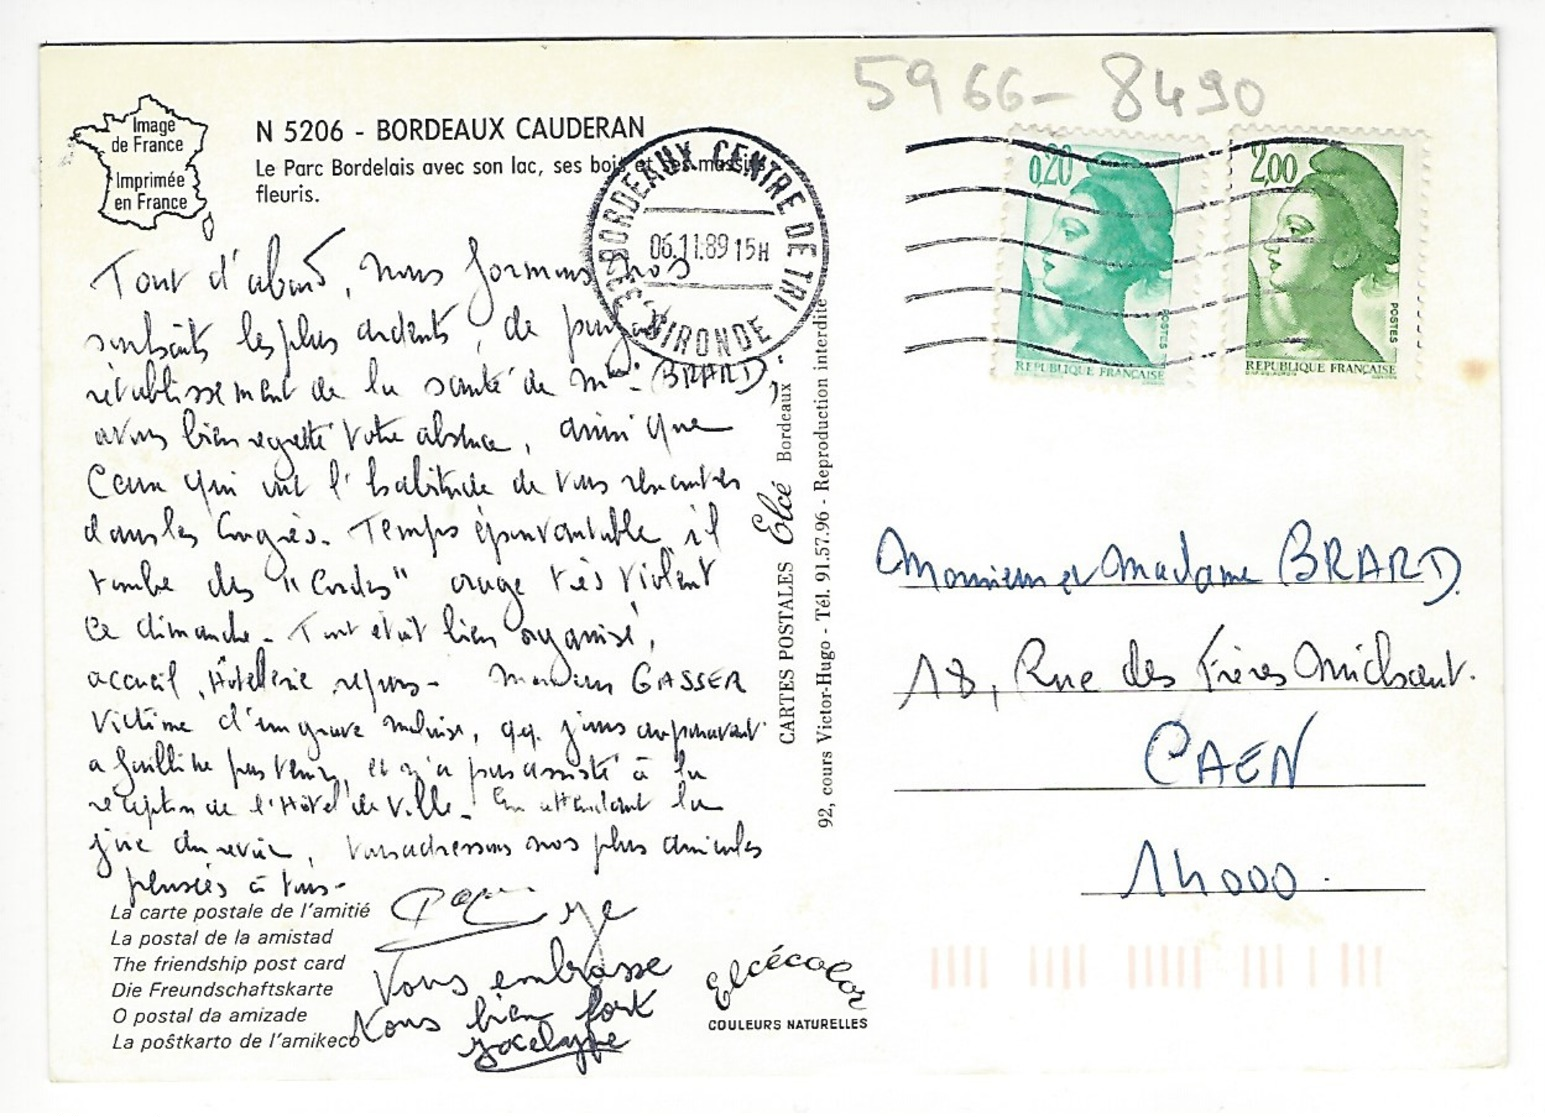 5966-8490
Image
de France
Imprimée
en France
N 5206 - BORDEAUX CAUDERAN
Le Parc Bordelais avec son lac, ses bois et ses massifs
fleuris.
BORDEAUX CENTRE DE TRI
06.11.89 15H
GIRONDE
0,20
POSTES
REPUBLIQUE FRANÇAISE
2,00
POSTES
REPUBLIQUE FRANÇAISE
Tout d'abord, nous formons nos
souhaits les plus ardents, de prompt
rétablissement de la santé de Mme BRARD,
avons bien regretté votre absence, ainsi que
Ceux qui ont l'habitude de vous rencontrer
dans les Congrès. Temps épouvantable il
tombe des "Cordes" orage très violent
ce dimanche. Tout était bien organisé,
accueil, Hôtellerie, repas - GASSER
victime d'un grave malaise, qq. jours auparavant
a failli ne pas venir, et n'a pas assisté à la
réception de l'Hôtel de Ville. En attendant la
joie du revoir, vous adressons nos plus amicales
pensées à tous -
Vous embrasse
Nous bien fort
Jocelyne
La carte postale de l'amitié
La postal de la amistad
The friendship post card
Die Freundschaftskarte
O postal da amizade
La poŝtkarto de l'amikeco
Elcécolor
COULEURS NATURELLES
CARTES POSTALES Elcé Bordeaux
92, cours Victor-Hugo - Tél. 91.57.96 - Reproduction interdite
Monsieur et Madame BRARD.
18, Rue des Frères Michaut.
CAEN
14000.